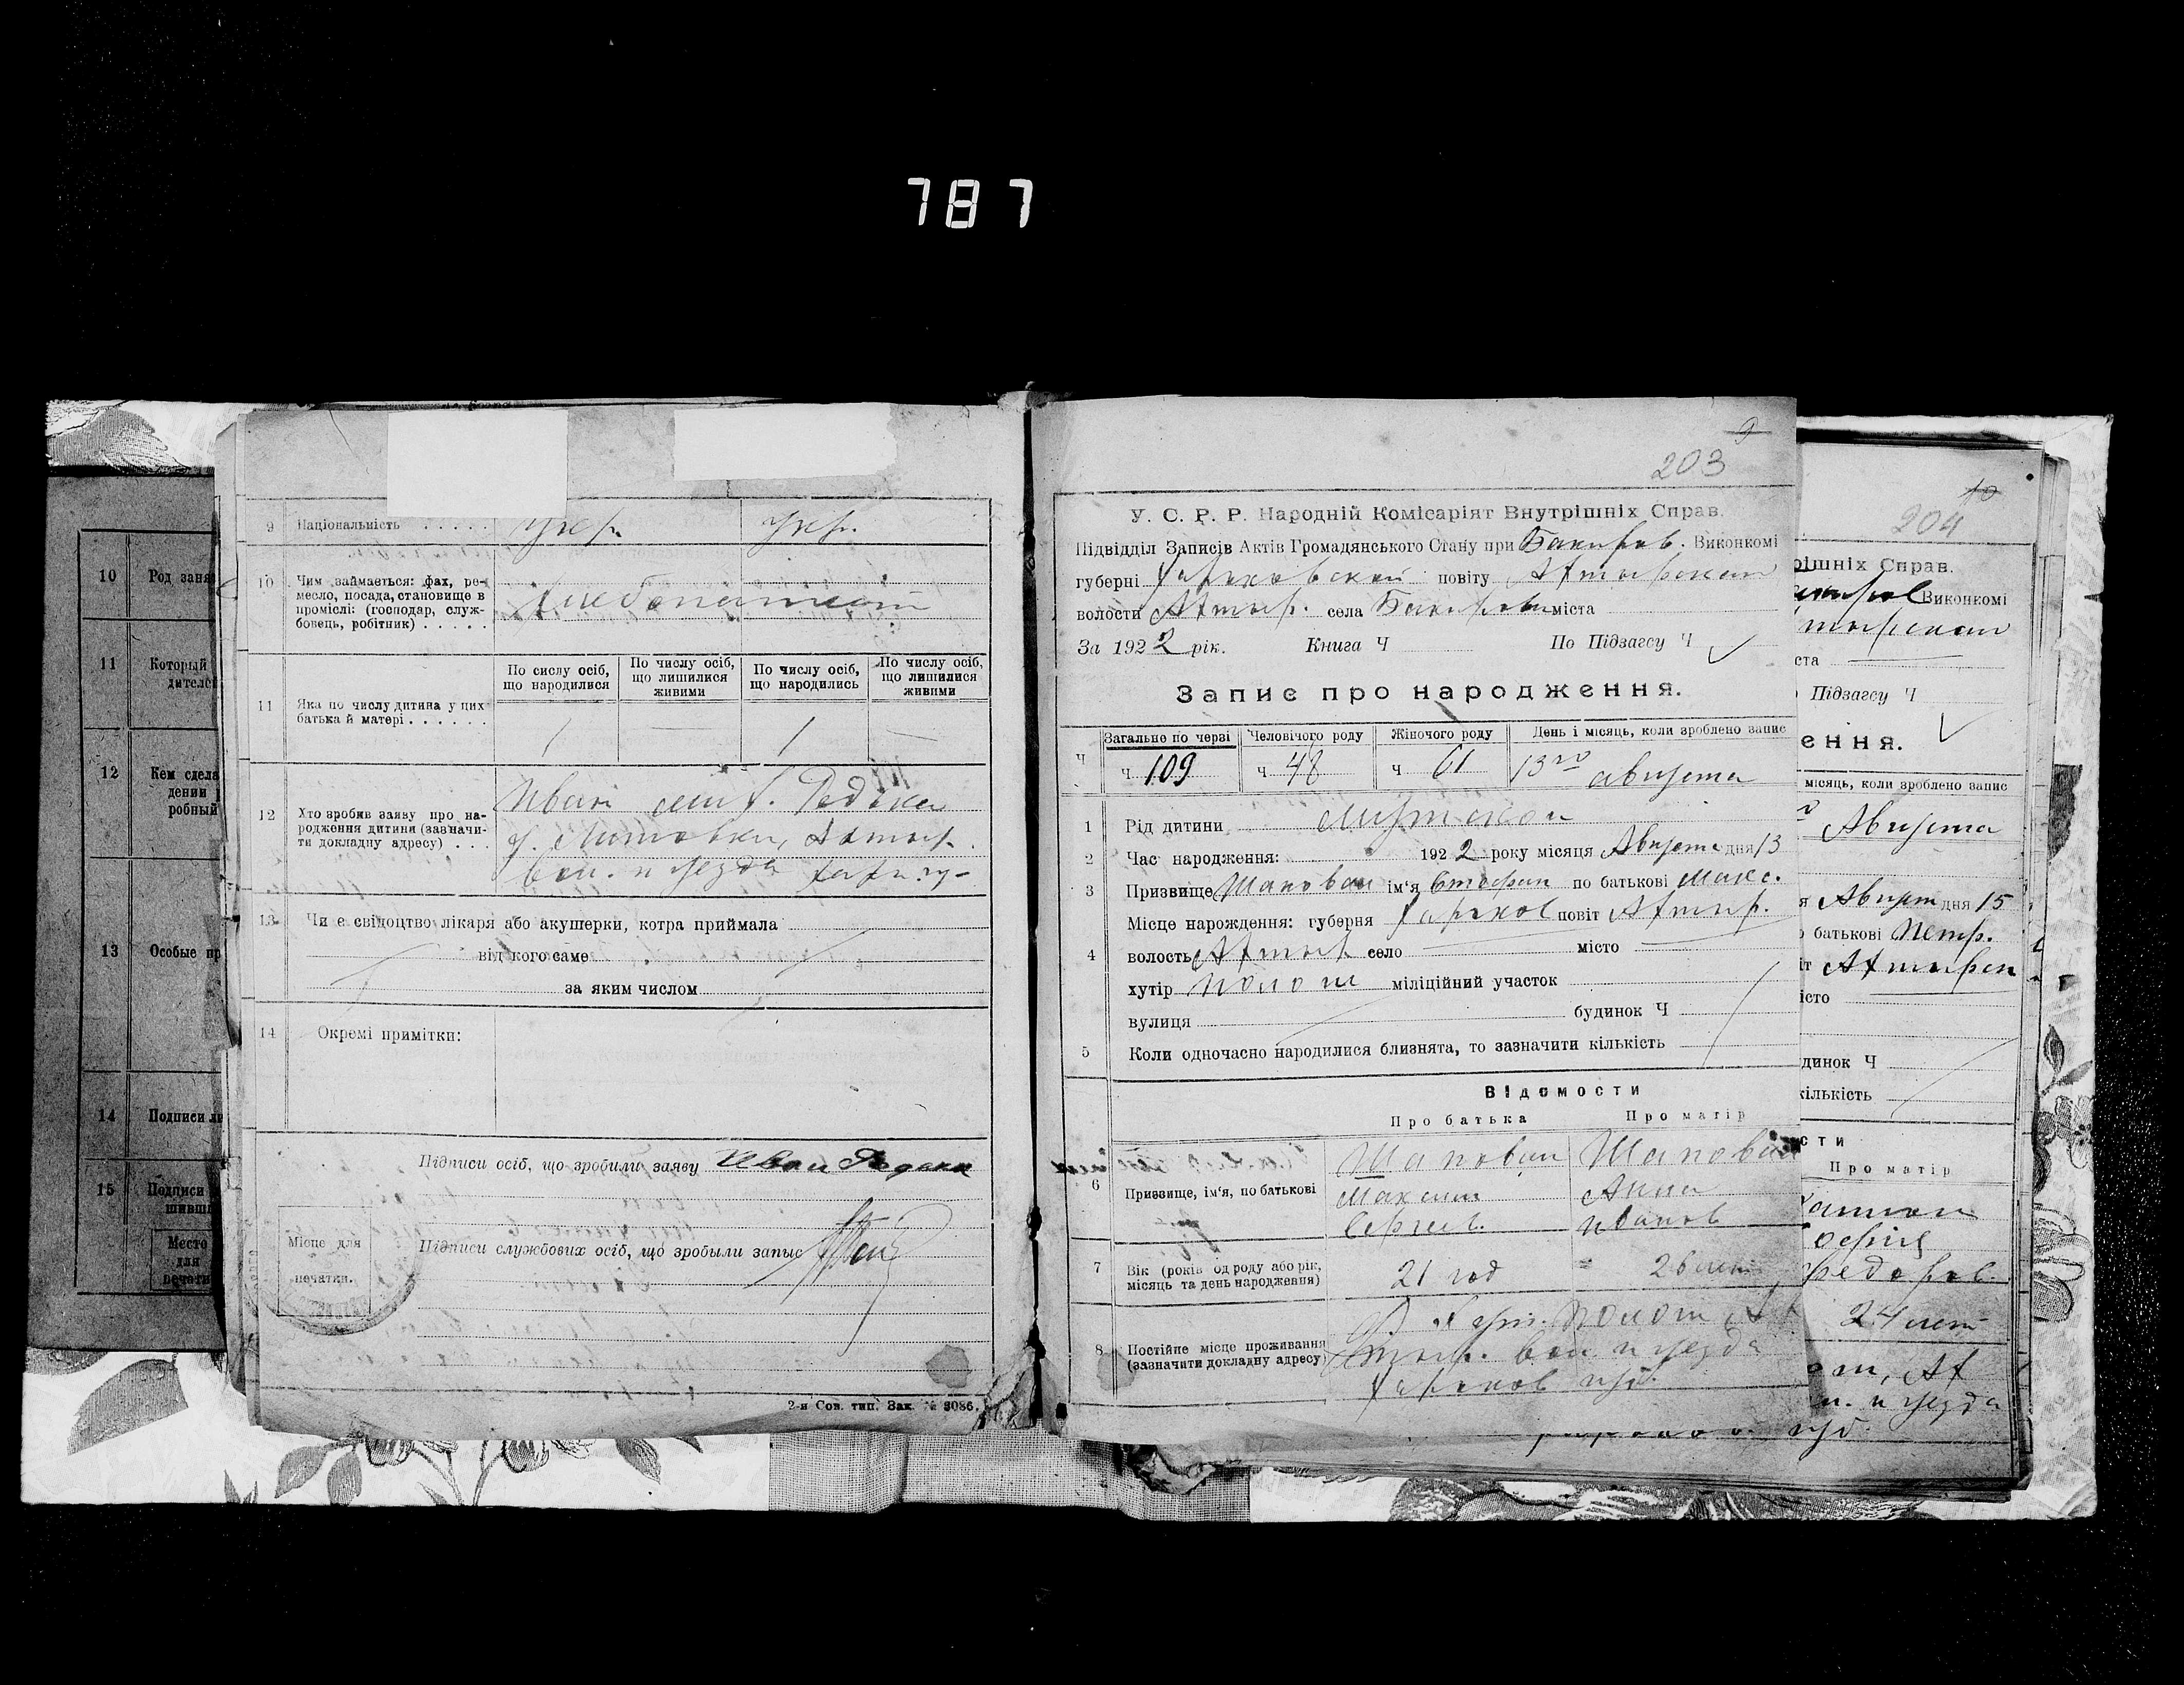 787
10 Род заня
11 Который
дителе
12 Кем сдела
дении
робный
13 Особые пр
14 Подписи ли
15 Подписи
шивш
Место
для
печати
9 Національність . . . . . укр. укр.
10 Чим займається: фах, ре-
месло, посада, становище в
проміслі: (господар, служ-
бовець, робітник) . . . . .
Хлебопашест
11 Яка по числу дитина у цих
батька й матері . . . . . .
По сислу осіб,
що народилися
По числу осіб,
що лишилися
живими
По числу осіб,
що народились
По числу осіб,
що лишилися
живими
1 — 1 —
12 Хто зробив заяву про на-
родження дитини (зазначи-
ти докладну адресу) . . .
Иван Редька
Литовки, Ахтыр.
вол. и уезда Харк. гу-
13 Чи є свідоцтво лікаря або акушерки, котра приймала
від кого саме
за яким числом
14 Окремі примітки:
Підписи осіб, що зробили заяву Иван Редька
Підписи службових осіб, що зробыли запыс
Місце для
печатки.
2-я Сов. тип. Зак. № 3086.
9
203
У. С. Р. Р. Народній Комісаріят Внутрішніх Справ.
Підвідділ Записів Актів Громадянського Стану при Бакиров. Виконкомі
губерні Харьковской повіту Ахтырскаго
волости Ахтыр. села Бакировки міста
За 1922 рік. Книга Ч По Підзагсу Ч
Запис про народження.
Ч Загальне по черзі Человічого роду Жіночого роду День і місяць, коли зроблено запис
ч 109 ч 48 ч 61 13го августа
1 Рід дитини Мужской
2 Час народження: 1922 року місяця Августа дня 13
3 Призвище Шаповал ім'я Стефан по батькові Макс.
Місце нарождення: губерня Харьков повіт Ахтыр.
4 волость Ахтыр село — місто —
хутір Полот міліційний участок
вулиця будинок Ч
5 Коли одночасно народилися близнята, то зазначити кількість
Відомости
Про батька Про матір
6 Призвище, ім'я, по батькові
Шаповал Шаповал
Максим Анна
Сергеев. Иванов
7 Вік (років од роду або рік,
місяць та день народження)
21 год 26 лет
8 Постійне місце проживання
(зазначити докладну адресу)
Хут. Полот Ах
тыр. вол. и уезда
Харьков губ.
10
204
рішніх Справ.
Виконкомі
тырскаго
ста —
Підзагсу Ч
ення.
місяць, коли зроблено запис
Августа
я Август дня 15
батькові Петр.
іт Ахтырск
істо —
динок Ч
кількість
сти
Про матір
офия
Федоров.
24 лет
т, Ах
л. и уезда
губ.